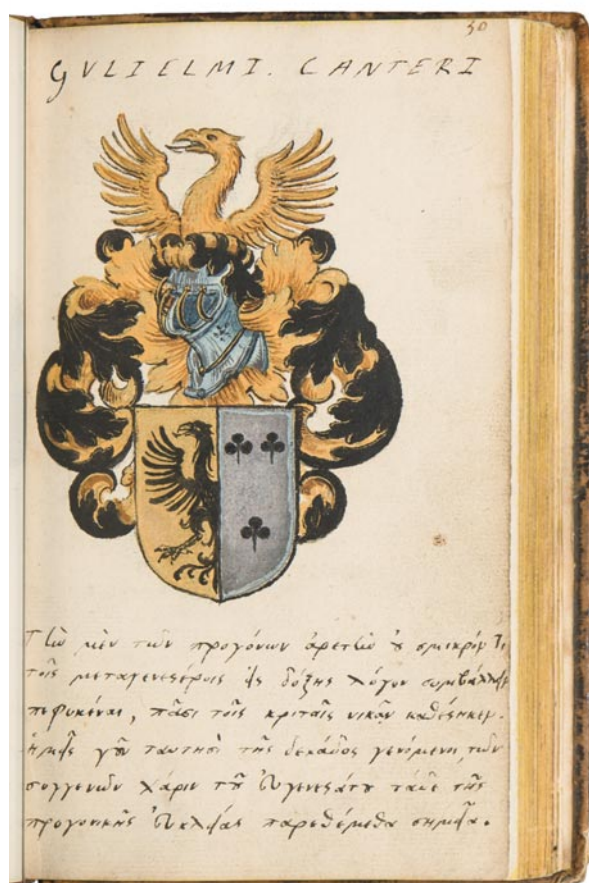 50
GVLIELMI. CANTERI
Τὴν μὲν τῶν προγόνων ἀρετὴν οὐ σμικρόν τι
τοῖς μεταγενεστέροις εἰς δόξης λόγον συμβάλλειν
πεφυκέναι, πᾶσι τοῖς κριταῖς νικᾶν καθέστηκεν.
ἡμεῖς γοῦν ταυτησὶ τῆς δεκάδος γενόμενοι, τῶν
συγγενῶν χάριν τοῦ εὐγενεστάτου τάδε τῆς
προγονικῆς εὐκλείας παρεθέμεθα σημεῖα.